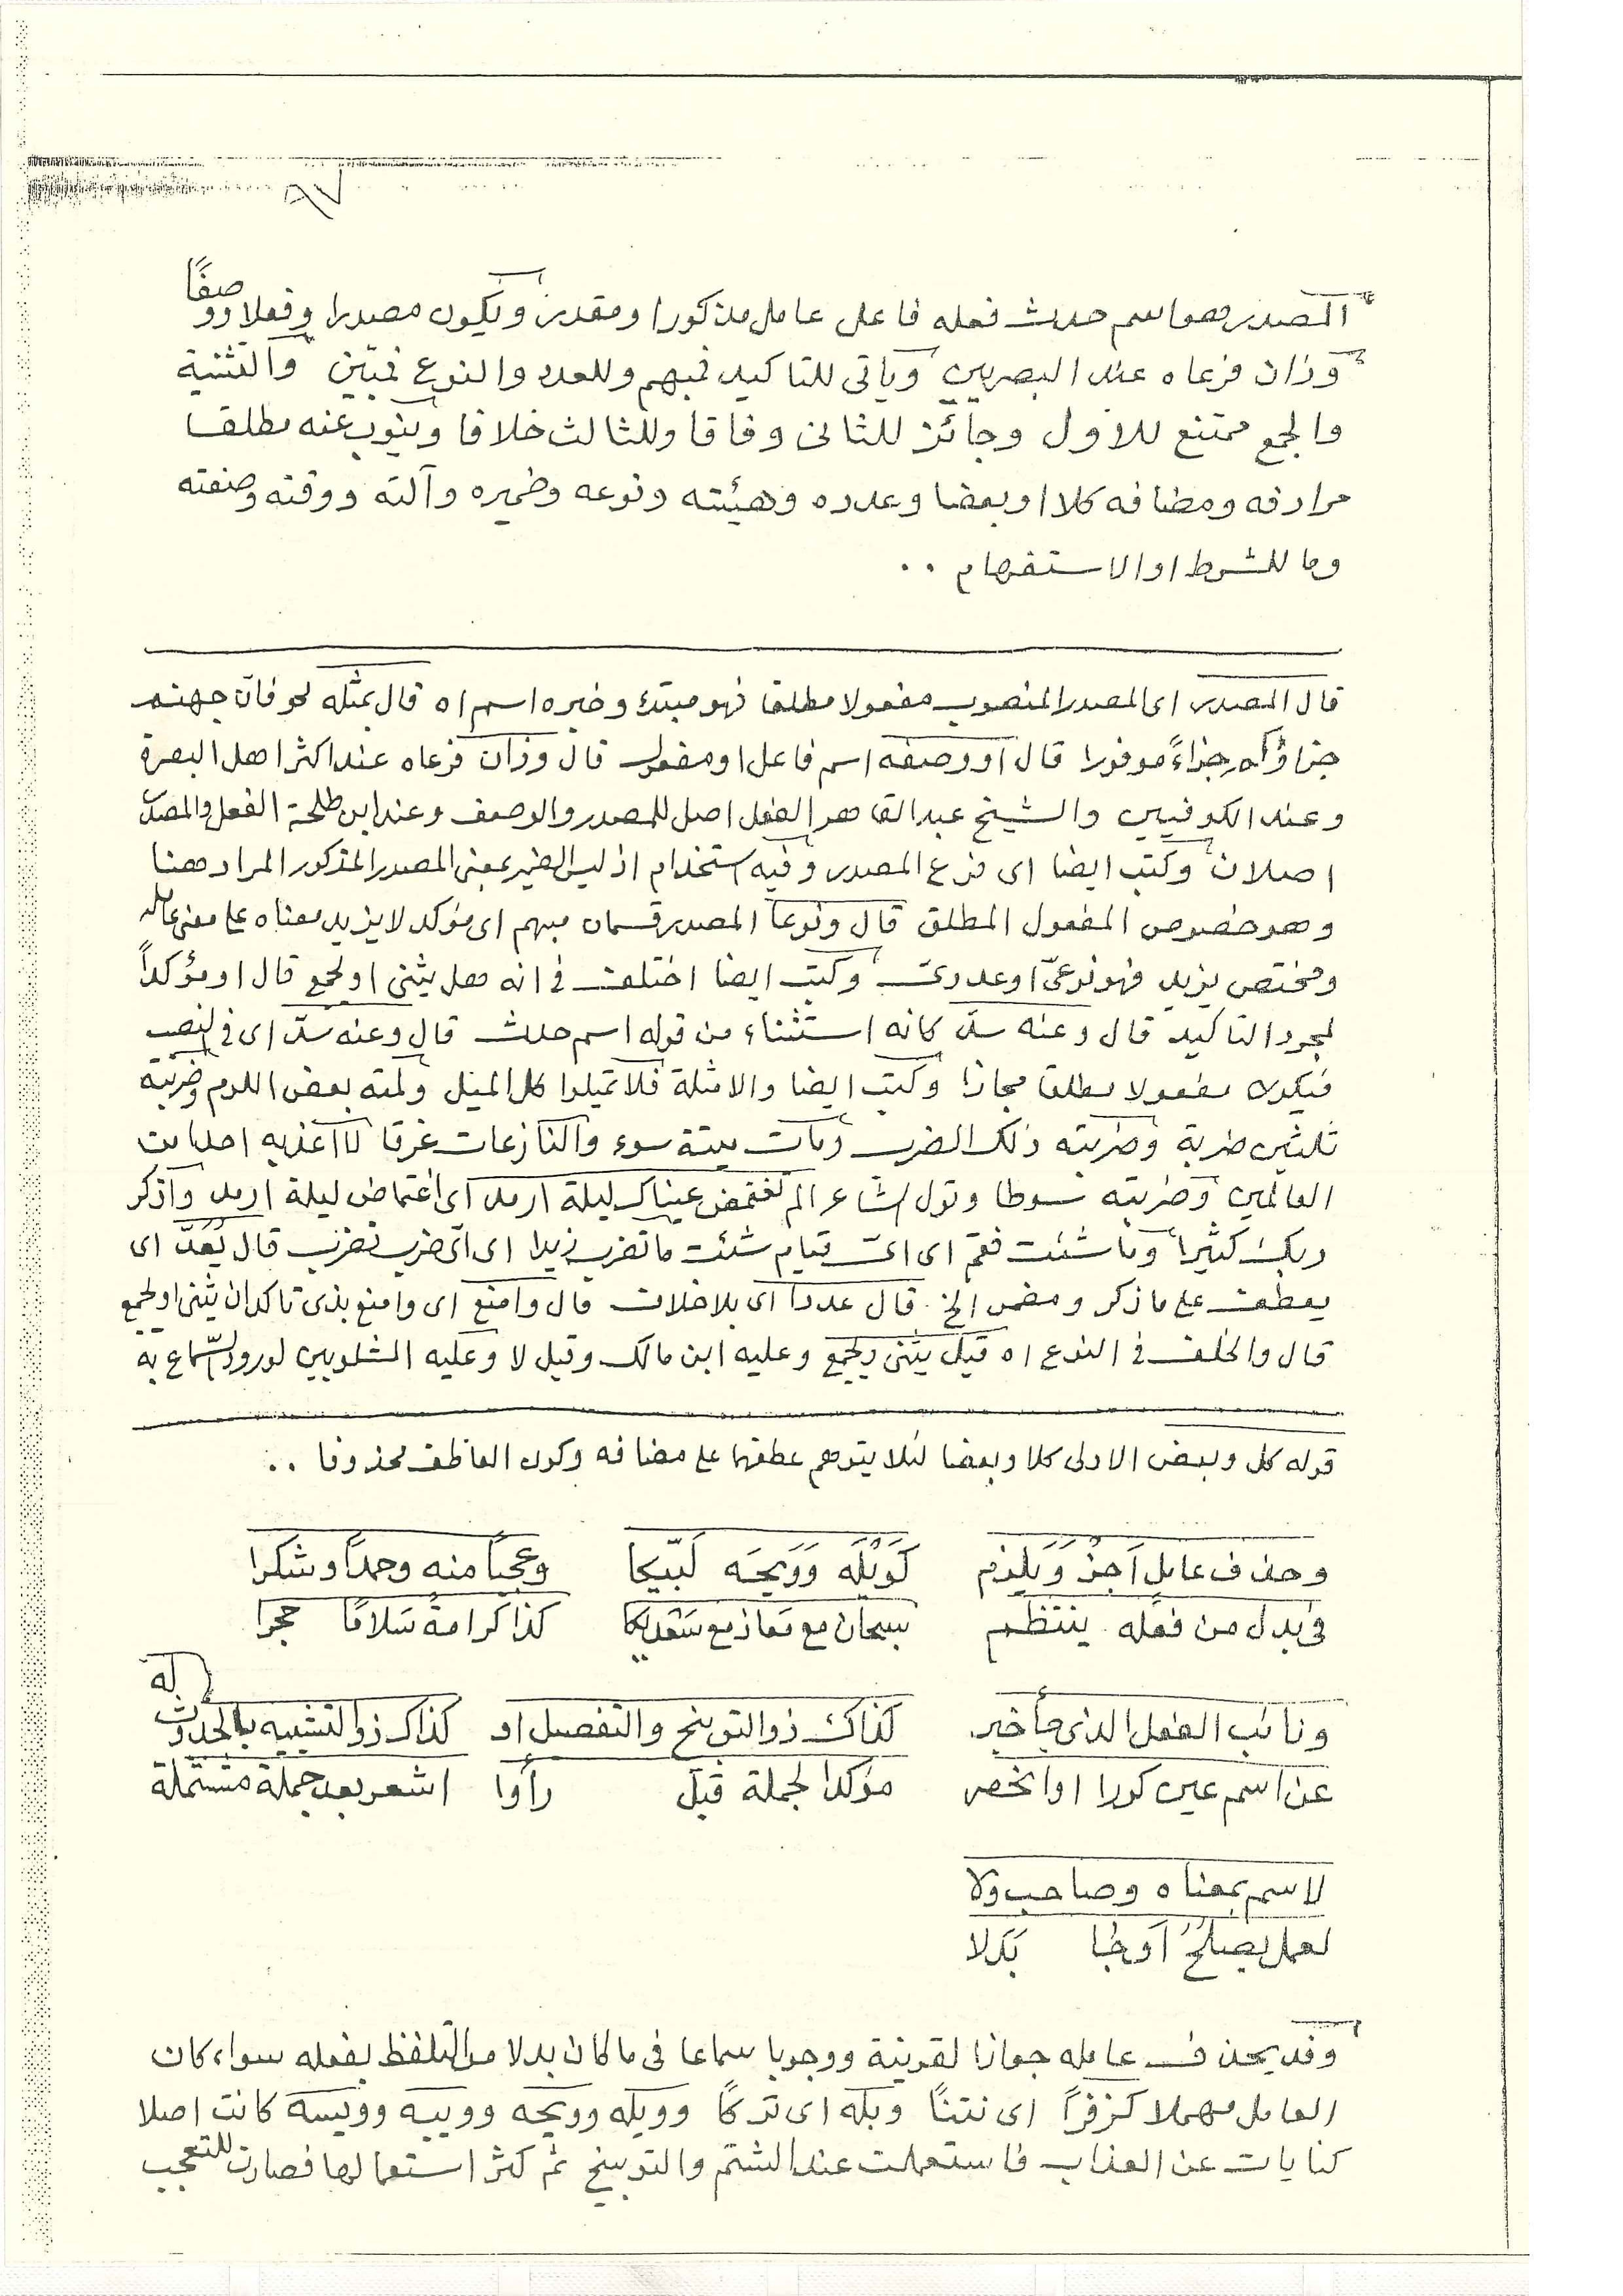 ٩٧
المصدر وهو اسم حدث فعله فاعل عامل مذكورا ومقدر ويكون مصدرا وفعلا ووصفًا
وذان فرعاه عند البصريين وياتى للتاكيد فمبهم وللعدد والنوع فمبين والتثنية
والجمع ممتنع للاول وجائز للثانى وفاقا وللثالث خلافا وينوب عنه مطلقا
مرادفه ومضافه كلا او بعضا وعدده وهيئته ونوعه وضميره وآلته ووقته وصفته
وما للشرط او الاستفهام ..
قال المصدر اى المصدر المنصوب مفعولا مطلقا فهو مبتدء وخبره اسم اه قال بمثله نحو فان جهنم
جزاؤكم جزاءً موفورا قال او وصفه اسم فاعل او مفعول قال وذان فرعاه عند اكثر اهل البصرة
وعند الكوفيين والشيخ عبد القاهر الفعل اصل للمصدر والوصف وعند ابن طلحة الفعل والمصدر
اصلان وكتب ايضا اى فرع المصدر وفيه استخدام اذ ليس الضمير بمعنى المصدر المذكور المراد هنا
وهو خصوص المفعول المطلق قال ونوعا المصدر قسمان مبهم اى مؤكد لا يزيد معناه على معنى عامله
ومختص يزيد فهو نوعىّ او عددىّ وكتب ايضا اختلف فى انه هل يثنى او يجمع قال او مؤكداً
لمجرد التاكيد قال وعنه سدّ كانه استثناء من قوله اسم حدث قال وعنه سدّ اى فى النصب
فيكون مفعولا مطلقا مجازا وكتب ايضا والامثلة فلا تميلوا كل الميل ولمته بعض اللوم وضربته
ثلثين ضربة وضربته ذلك الضرب ومات ميتة سوء والنازعات غرقا لا اعذبه احدا من
العالمين وضربته سوطا وقول الشاعر الم تغتمض عيناك ليلة ارمد اى اغتماض ليلة ارمد واذكر
ربك كثيرا وما شئت فقم اى اىّ قيام شئت ما تضرب زيدا اى اىّ ضرب تضرب قال يُعَدّ اى
يعطف على ما ذكر ومضى الخ قال عددا اى بلا خلاف قال وامنع اى وامنع بذى تاكد ان يثنى او يجمع
قال والخلف فى النوع اه قيل يثنى ويجمع وعليه ابن مالك وقيل لا وعليه الشلوبين لورود السّماع به
قوله كل وبعض الاولى كلا وبعضا لئلا يتوهم عطفهما على مضافه وكون العاطف محذوفا ..
وحذف عامل اَجِزْ وَيَلزم    كَوَيْلَه وَوَيحَه لَبّيكا    وعجبًا منه وحمدًا وشكرا
فى بدل من فعله ينتظم    سبحان مع معاذ مع سَعْدَيكا    كذا كرامةً سَلامًا حجرا
ونائب الفعل الذى جأ خبر    كذاك ذو التوبيخ والتفصيل او    كذاك ذو التشبيه بالحدوث له
عن اسم عين كررا او انحصر    مؤكدا لجملة قبل رأوا    اشعر بعد جملة مشتملة
لاسم بمعناه وصاحب ولا
لعمل يصلحُ اَوضا بَدلا
وقد يحذف عامله جوازا لقرينة ووجوبا سماعا فى ما كان بدلا من التلفظ بفعله سواء كان
العامل مهملا كزفرًا اى نتنًا وبله اى تركًا وويله وويحه وويبه وويسه كانت اصلا
كنايات عن العذاب فاستعملت عند الشتم والتوبيخ ثم كثر استعمالها فصارت للتعجب